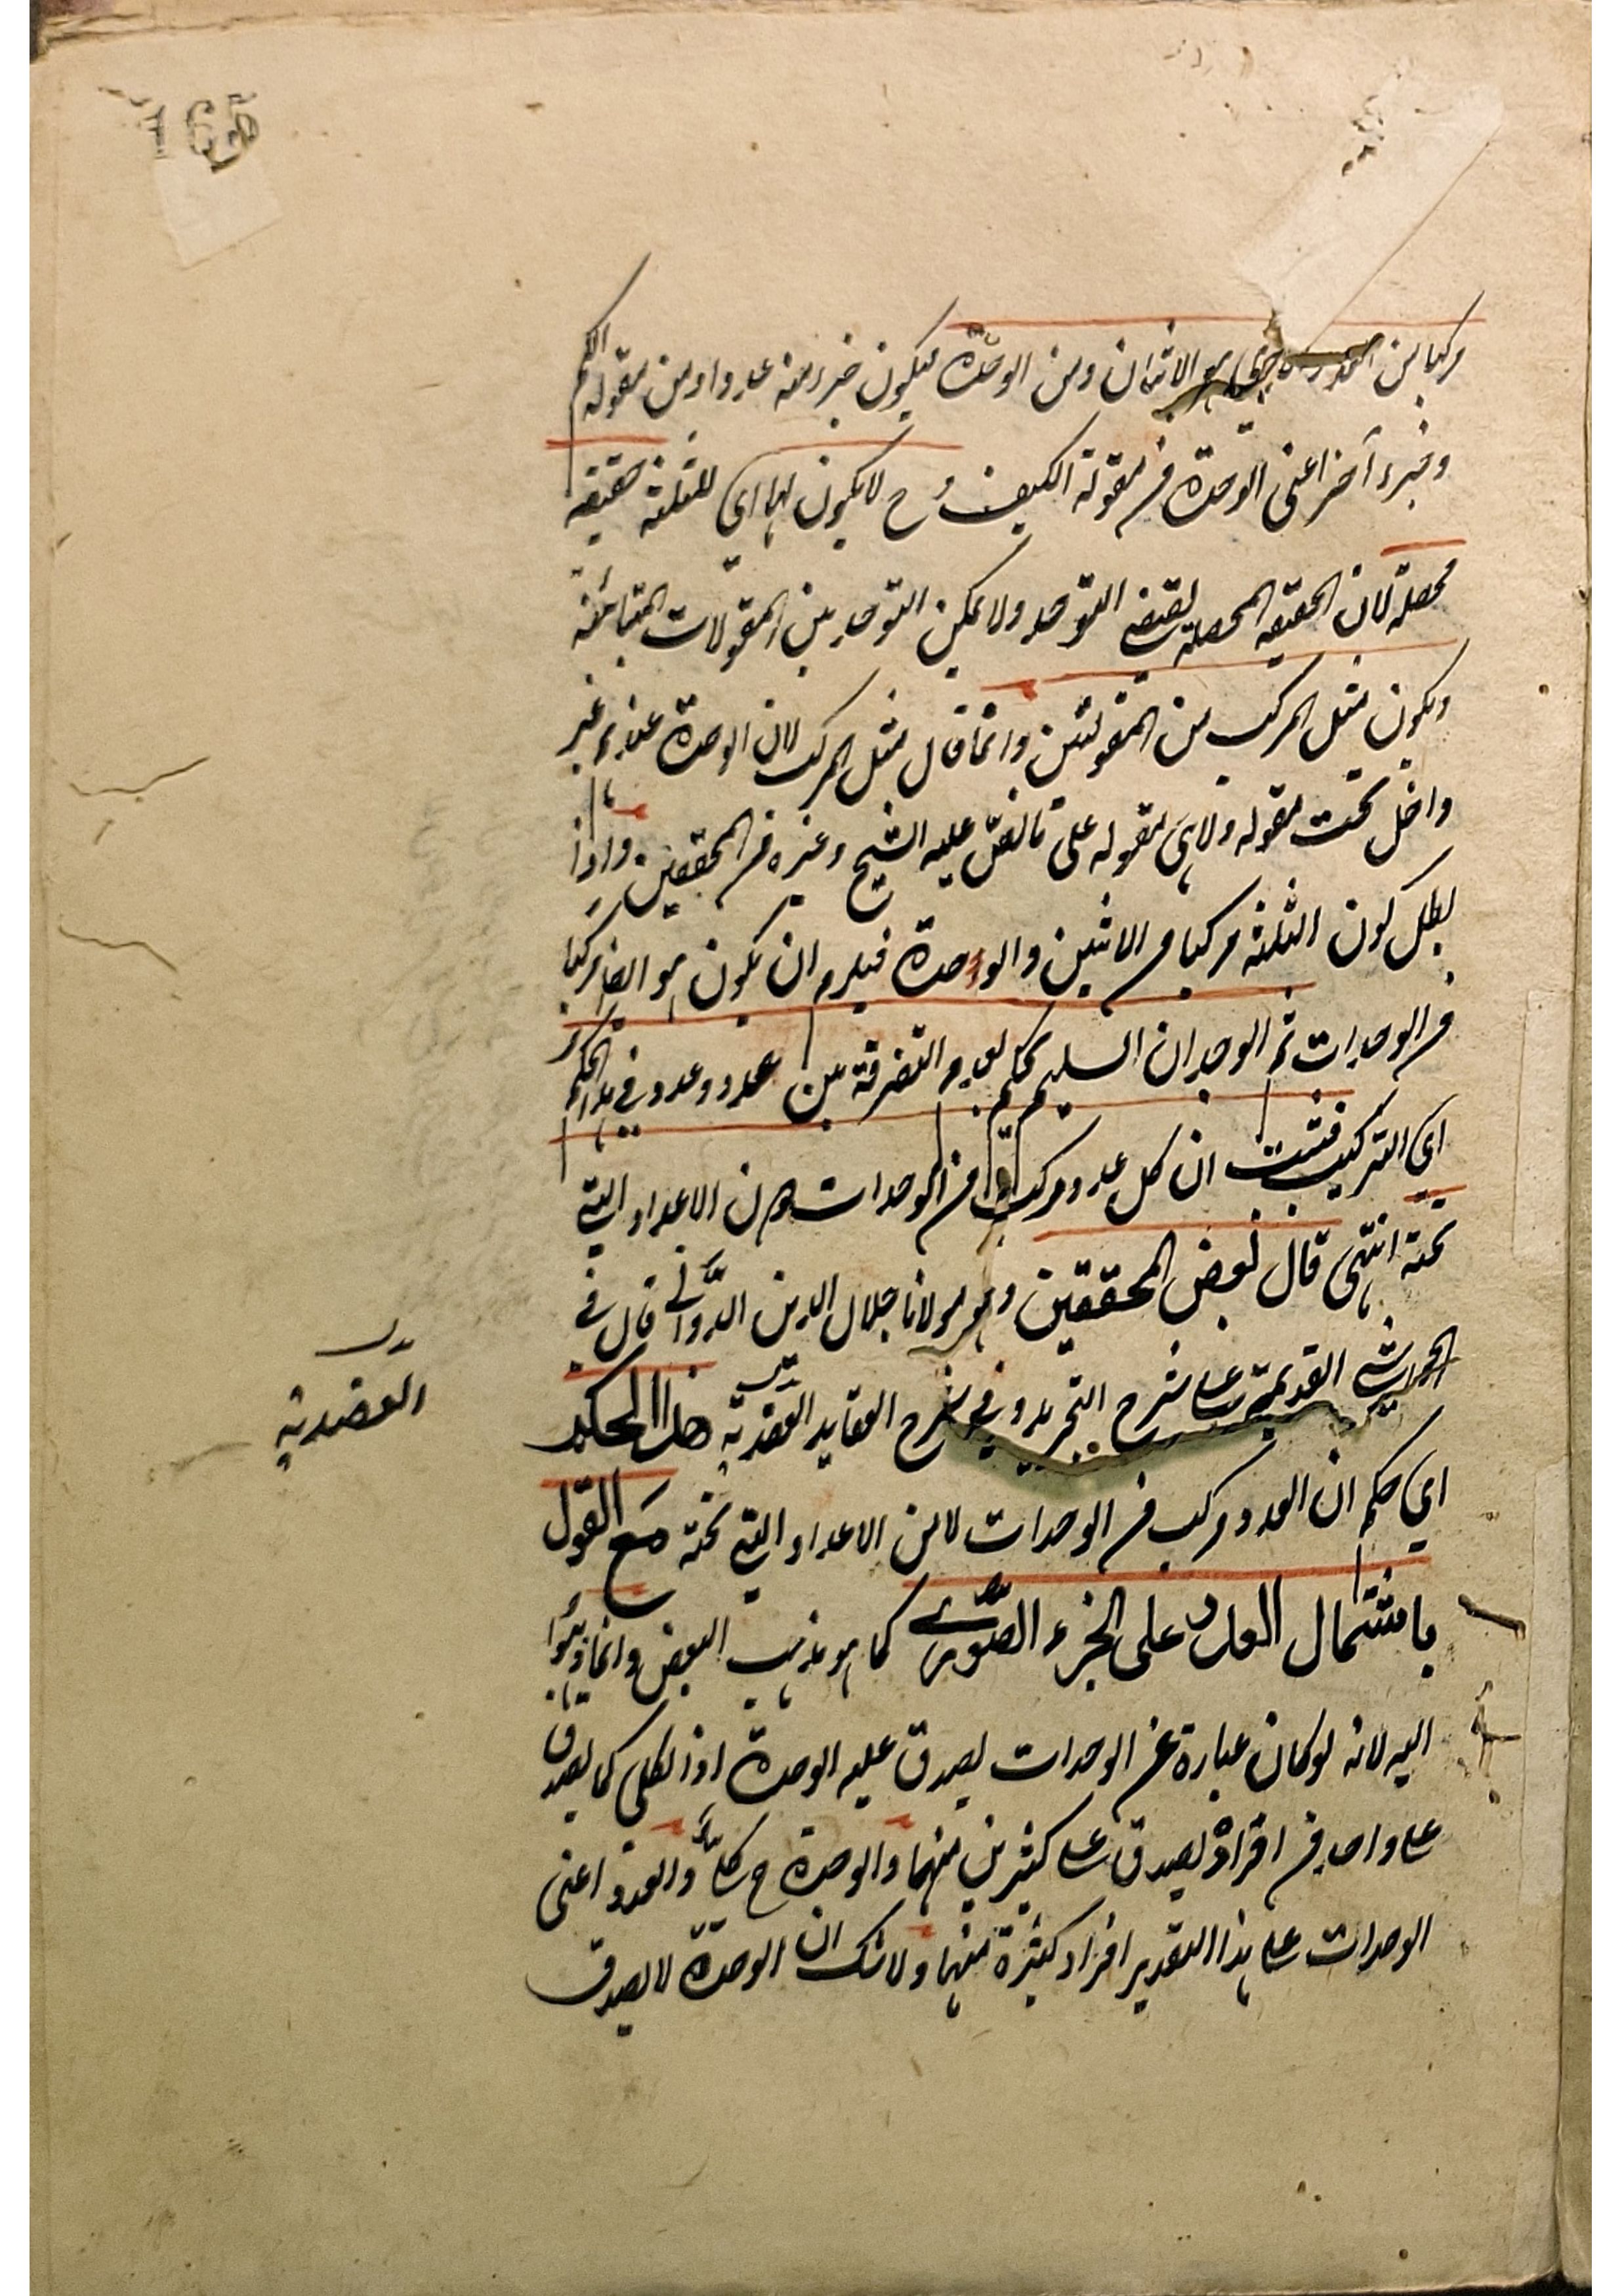 165
مركبا من العدد الذي هو الاثنان ومن الوحدة فيكون جزء منه عددا ومن مقولة الكم
وجزء آخر اعنى الوحدة من مقولة الكيف وح لا يكون لها اى للثلثة حقيقة
محصلة لان الحقيقة المحصلة تقتضى التوحد ولا يمكن التوحد بين المقولات المتبائنة
ويكون مثل المركب من المقولتين وانما قال مثل المركب لان الوحدة عندهم غير
داخل تحت مقوله ولا هى مقوله على ما نص عليه الشيخ وغيره من المحققين واذا
بطل كون الثلثة مركبا من الاثنين والوحدة فيلزم ان يكون هو ايضا مركبا
من الوحدات ثم الوجدان السليم يحكم بعدم التفرقة بين عدد وعدد في هذا الحكم
اي التركيب فثبت ان كل عدد مركب من الوحدات دون الاعداد التي
تحته انتهى قال بعض المحققين وهو مولانا جلال الدين الدّوّانى قال في
الحواشي القديمة على شرح التجريد وفي شرح العقايد العضدية هذا الحكم
العضدية
اي حكم ان العدد مركب من الوحدات لا من الاعداد التي تحته مع القول
باشتمال العدد على الجزء الصّورى كما هو مذهب البعض وانما ذهبوا
اليه لانه لو كان عبارة عن الوحدات يصدق عليه الوحدة اذ الكلي كما يصدق
على واحد من افراده يصدق على كثيرين منها والوحدة ح كليّ والعدد اعنى
الوحدات على هذا التقدير افراد كثيرة منها ولا شك ان الوحدة لا يصدق